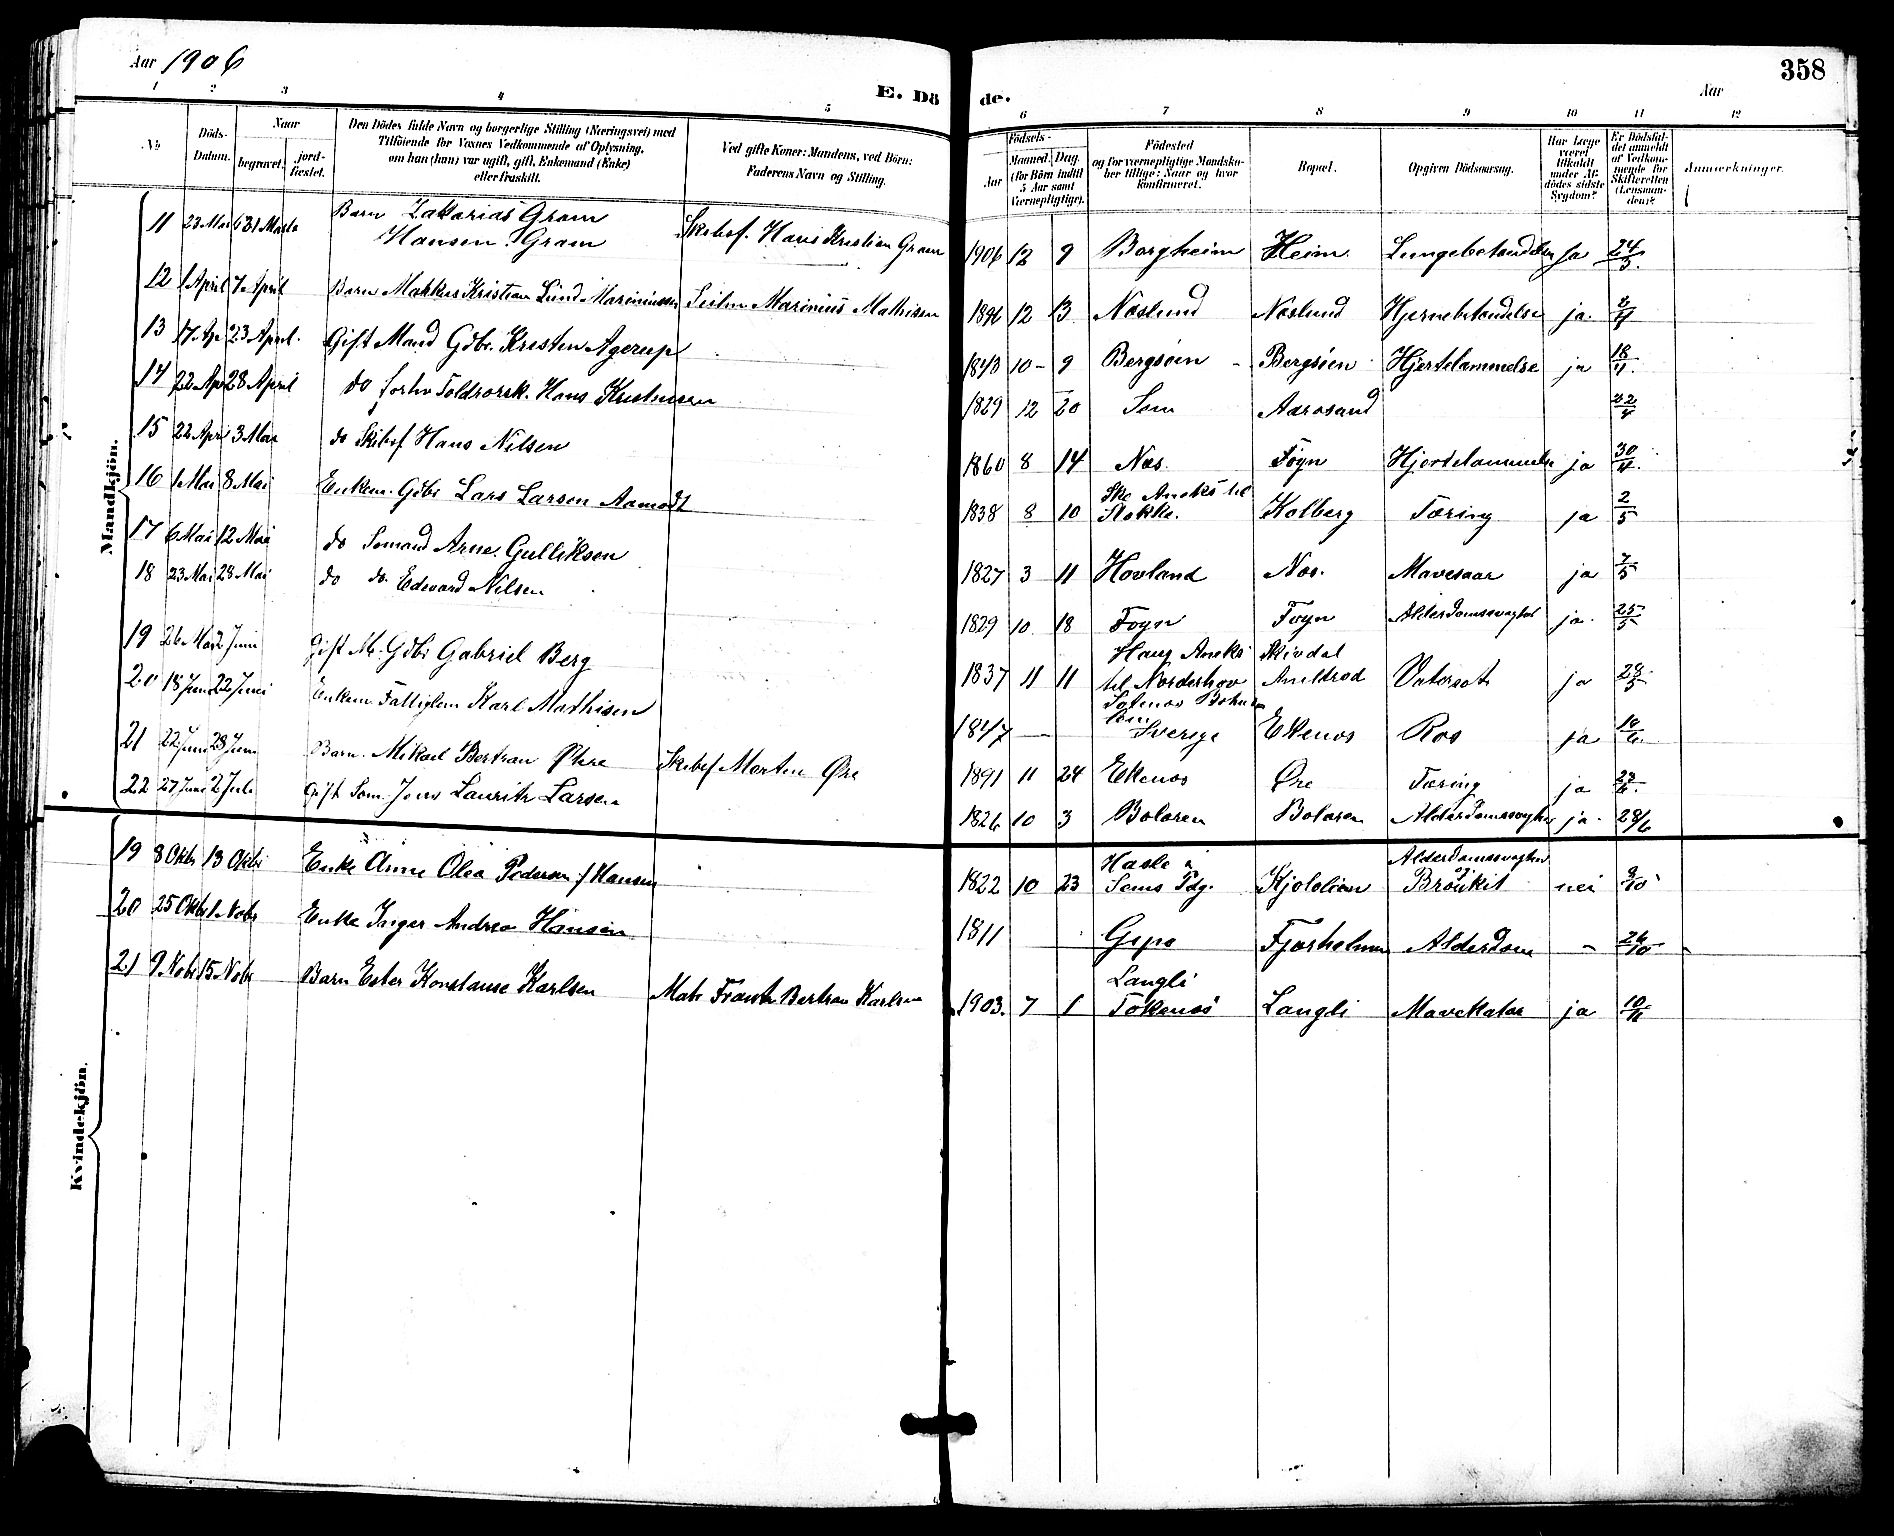 Aar 1906
E. Dö
de.
Aar
358
1 2 3 4 5
6 7 8 9 10 11 12
No.
Döds-
Datum.
Naar
begravet.
jord-
fæstet.
Den Dödes fulde Navn og borgerlige Stilling (Næringsvei) med
Tilföiende for Voxnes Vedkommende af Oplysning,
om han (hun) var ugift, gift, Enkemand (Enke)
eller fraskilt.
Ved gifte Koner: Mandens, ved Börn:
Faderens Navn og Stilling.
Födsels-
Aar
Maaned. Dag.
(for Börn indtil
5 Aar samt
Værnepligtige).
Födested
og for værnepligtige Mandsko-
ber tillige: Naar og hvor
konfirmeret.
Bopæl.
Opgiven Dödsaarsag.
Har Læge
været
tilkaldt
under Af-
dödes sidste
Sygdom?
Er Dödsfal-
det anmeldt
af Vedkom-
mende for
Skifteretten
(Lensman-
den)?
Anmærkninger.
Mandkjön.
11 23 Mar 31 Marts Barn Zakarias Gram Skibsf. Hans Kristian Gram 1906 12 9 Borgheim Heim Lungebetændelse Ja 24/3
Hansen Gram
12 1 April 7 April Barn Markus Kristian Lund Mariniussen Seilm Marinius Mathisen 1896 12 13 Næslund Næslund Hjernebetændelse ja 2/4
13 17 Apr 23 April Gift Mand Gdbr. Kristen Agerup 1843 10 9 Bergsöen Bergsöen Hjertelammelse ja 18/4
14 22 Apr 28 April do forhv Toldrorsk. Hans Kristensen 1829 12 20 Sem Aarøsund 22/4
15 22 Apr 3 Mai do Skibsf Hans Nilsen 1860 8 14 Næs Föyn Hjertelammelse ja 30/4
16 1 Mai 8 Mai Enkem. Gdbr Lars Larsen Aamodt 1838 8 10 Ske Aneks til
Stokke. Kolberg Tæring ja 2/5
17 6 Mai 12 Mai do Sømand Arne Gulliksen 1827 3 11 Hovland Næs. Mavesaar ja 7/5
18 23 Mai 28 Mai do do. Edevard Nilsen 1829 10 18 Foyn Foyn Alderdomssvaghed ja 25/5
19 26 Mai 2 Juni Gift M. Gdbr Gabriel Berg 1837 11 11 Haug Aneks
til Norderhov Skivdal
ja 28/5
20 18 Juni 22 Juni Enkem Fattiglem Karl Mathisen 1847 Sotenæs
Sverige Ekenes Ros ja 18/6
21 22 Juni 28 Juni Barn. Mikael Bertran Øhre Skibsf Morten Øre 1891 11 24 Ekenes Øre Tæring ja 23/6
22 27 Juni 2 Juli Gift Søm. Jens Lauritz Larsen 1826 10 3 Bolæren Bolæren Alderdomssvaghed ja 28/6
Kvindekjön.
19 8 Oktbr 13 Oktbr Enke Anne Olea Pedersen f/ Hansen 1822 10 23 Hasle i
Sems Pdg. Kjølelien Alderdomssvaghed
og Bronkit nei 9/10
20 25 Oktbr 1 Novbr Enke Inger Andrea Hansen 1811 Gipø Fjærholmen Alderdom - 26/10 -
21 9 Novbr 15 Novbr Barn Ester Konstanse Karlsen Matr Frantz Bertran Karlsen 1903. 7 1 Langli
Tokenes Langli Mavekatar ja 10/11